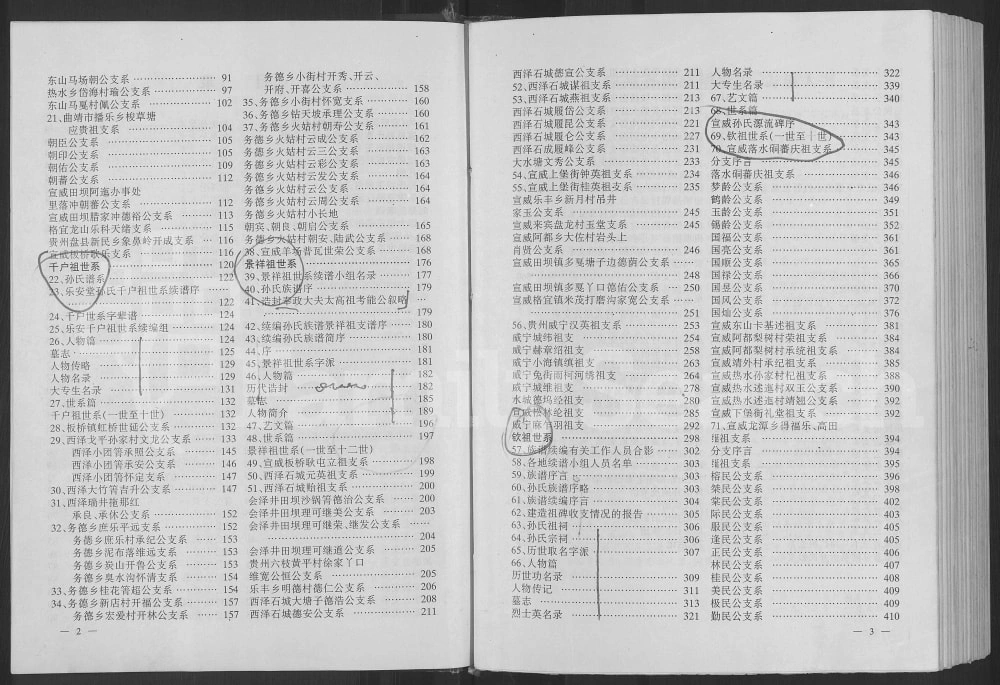 东山马场朝公支系 91
热水乡岱海村瑜公支系 97
东山马戛村佩公支系 102
21、曲靖市播乐乡梭草塘
应贵祖支系 104
朝臣公支系 105
朝印公支系 105
朝佑公公支系 109
朝蕃公支系 112
宣威田坝阿迤办事处
里落冲朝蕃公支系 112
宣威田坝腊家冲德裕公支系 113
格宜龙山乐科天绪支系 115
贵州盘县新民乡象鼻岭开成支系 116
宣威板桥歌乐支系 116
千户祖世系 120
22、孙氏谱系 122
23、乐安堂孙氏千户祖世系续谱序
122
24、千户世系字辈谱 124
25、乐安千户祖世系续编组 124
26、人物篇 124
墓志 125
人物传略 129
人物名录 129
大专生名录 131
27、世系篇 132
千户祖世系(一世至十世) 132
28、板桥镇虹桥世延公支系 132
29、西泽戈平孙家村文龙公支系 133
西泽小团箐承照公支系 145
西泽小团箐承安公支系 146
西泽小团箐怀定支系 147
30、西泽大竹箐吉升公支系 147
31、西泽瑞井拖那红
承良、承休公支系 152
32、务德乡庶乐平远支系 152
务德乡庶乐村承纪公支系 153
务德乡泥布落维远支系 153
务德乡炭山开鲁公支系 153
务德乡臭水沟怀清支系 154
33、务德乡桂花箐超公支系 154
34、务德乡新店村开福公支系 157
务德乡宏爱村开林公支系 157
— 2 —
务德乡小街村开秀、开云、
开府、开喜公支系 158
35、务德乡小街村怀宽支系 160
36、务德乡钻天坡承理公支系 160
37、务德乡火姑村朝寿公支系 161
务德乡火姑村云成公支系 162
务德乡火姑村云三公支系 163
务德乡火姑村云彩公支系 163
务德乡火姑村云发公支系 164
务德乡火姑村云公支系 164
务德乡火姑村云周公支系 164
务德乡火姑村小长地
朝宾、朝良、朝启公支系 165
务德乡火姑村朝安、陆武公支系 168
38、宣威羊场普瓦世荣公支系 168
景祥祖世系 176
39、景祥祖世系续谱小组名录 177
40、孙氏族谱序 179
41、诰封奉政大夫太高祖考能公叙略
179
42、续编孙氏族谱景祥祖支谱序 180
43、续编孙氏族谱简序 180
44、序 181
45、景祥祖世系字派 181
46、人物篇 182
历代诰封 182
墓志 185
人物简介 189
47、艺文篇 196
48、世系篇 197
景祥祖世系(一世至十二世)
49、宣威板桥耿屯立祖支系 198
50、西泽石城元英祖支系 199
51、西泽石城贻祖支系 200
会泽井田坝沙锅箐德治公支系 200
会泽井田坝理可继美公支系 203
会泽井田坝理可继荣、继发公支系
204
会泽井田坝理可继道公支系 205
贵州六枝黄平村徐家丫口
维宽公恒公支系 205
乐丰乡明德村德仁公支系 206
西泽石城大塘子德浩公支系 208
西泽石城德安公支系 211
西泽石城德宣公支系 211
52、西泽石城谋祖支系 211
53、西泽石城燕祖支系 213
西泽石城履岱公支系 213
西泽石城履昆公支系 221
西泽石城履仑公支系 227
西泽石成履峰公支系 231
大水塘文秀公支系 233
54、宣威上堡街钟英祖支系 234
55、宣威上堡街桂英祖支系 235
宣威乐丰乡新月村吊井
家玉公支系 245
宣威来宾盘龙村玉堂支系 245
宣威阿都乡大佐村岩头上
肖贤公支系 246
宣威田坝镇多戛塘子边德荫公支系
248
宣威田坝镇多戛丫口德佑公支系 250
宣威格宜镇米茂打磨沟家宽公支系
251
56、贵州威宁汉英祖支系 253
威宁城纬祖支 254
威宁赫章绍祖支 258
威宁小海镇缜祖支 265
威宁兔街雨柯河绣祖支 264
威宁城维祖支 278
水城德坞经祖支 280
285
292
钦祖世系 298
57、族谱续编有关工作人员合影 302
58、各地续谱小组人员名单 303
59、族谱序言 303
60、孙氏族谱序略 303
61、族谱续编序言 304
62、建造祖碑收支情况的报告 305
63、孙氏祖祠 306
64、孙氏宗祠 306
65、历世取名字派 307
66、人物篇
历世功名录 309
人物传记 311
墓志 313
烈士英名录 321
人物名录 322
大专生名录 339
67、艺文篇 340
68、世系篇
宣威孙氏源流碑序 343
69、钦祖世系(一世至 世) 343
70、宣威落水硐蕃庆祖支系 345
分支序言 345
落水硐蕃庆祖支系 346
梦龄公支系 346
鹤龄公支系 349
玉龄公支系 351
锡龄公支系 352
国福公支系 361
国亮公支系 361
国顺公支系 365
国禄公支系 366
国昱公支系 370
国风公支系 372
国灿公支系 376
宣威东山卡基述祖支系 381
宣威阿都梨树村荣祖支系 384
宣威阿都梨树村承统祖支系 384
宣威靖外村承纪祖支系 385
宣威热水孙家村杞祖支系 388
宣威热水述迤村双玉公支系 390
宣威热水述迤村靖翘公支系 392
宣威下堡街礼堂祖支系 392
71、宣威龙潭乡得福乐、高田
祖支系 394
分支序言 394
祖支系 395
榕民公支系 396
棨民公支系 398
棠民公支系 402
际民公支系 403
服民公支系 405
逢民公支系 405
正民公支系 406
林民公支系 407
桂民公支系 408
美民公支系 409
极民公支系 409
勤民公支系 410
— 3 —